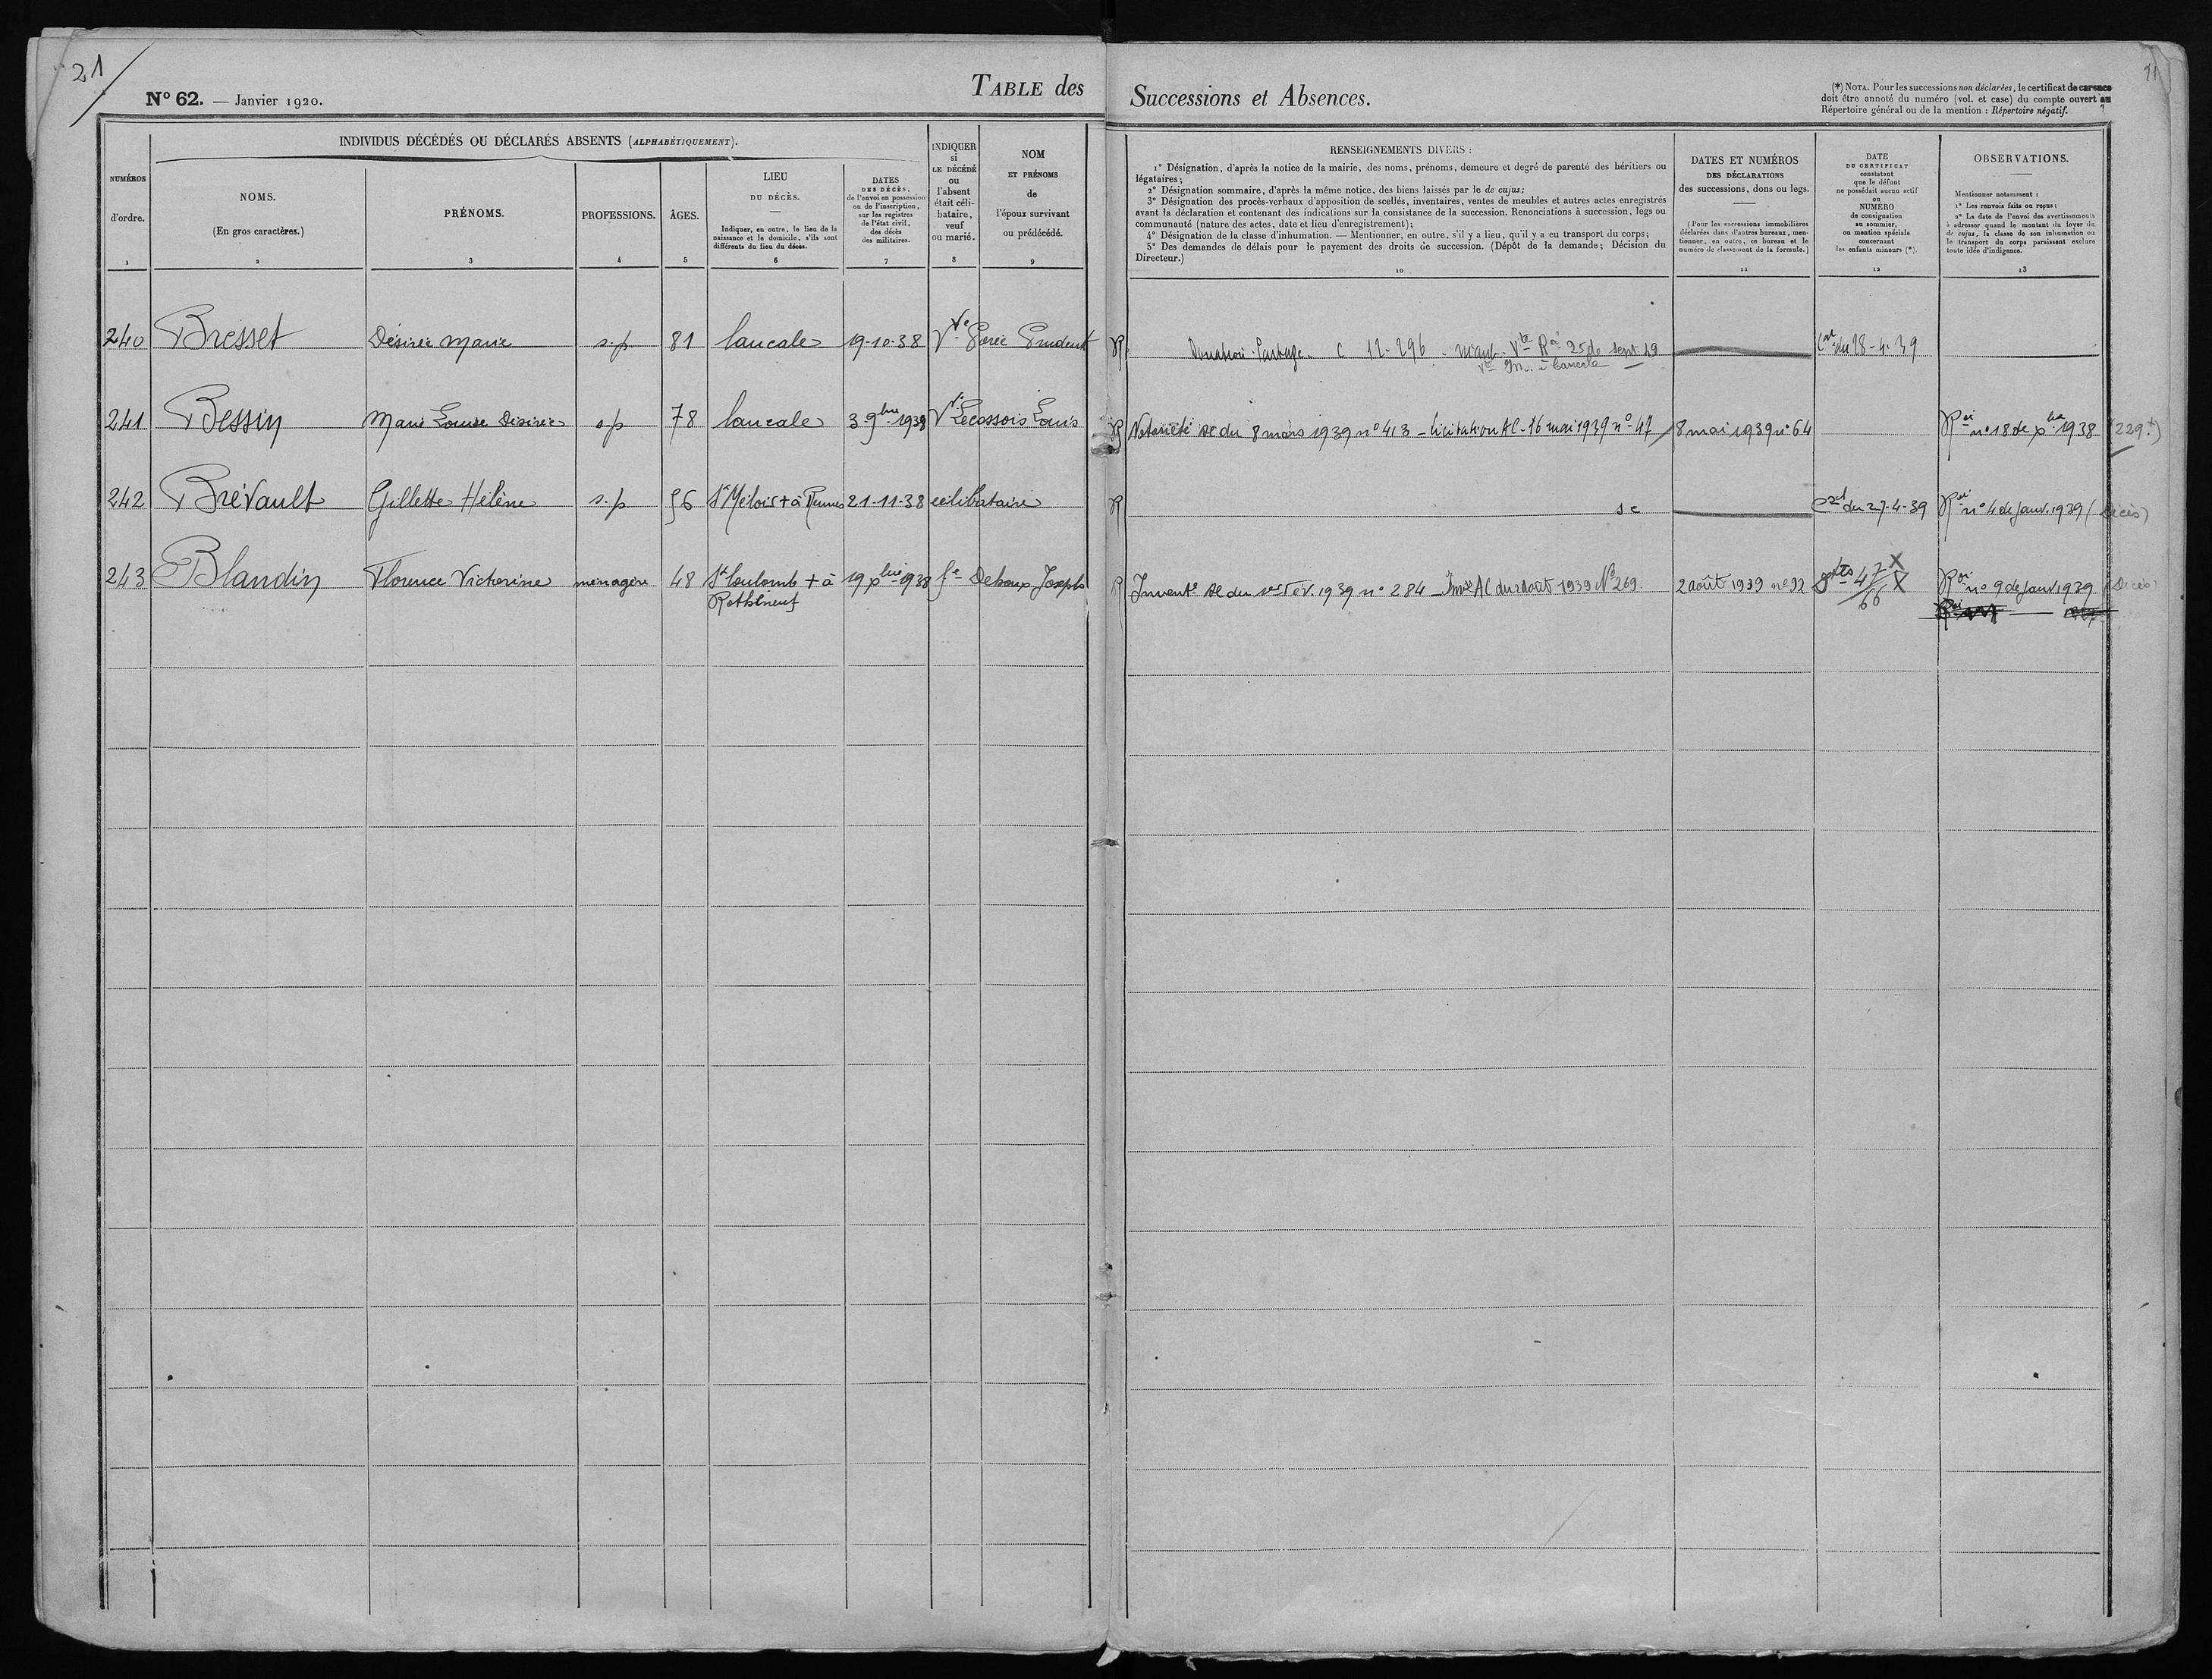 21
N° 62. — Janvier 1920.
TABLE des Successions et Absences.
(*) NOTA. Pour les successions non déclarées, le certificat de carence
doit être annoté du numéro (vol. et case) du compte ouvert au
Répertoire général ou de la mention : Répertoire négatif.
INDIVIDUS DÉCÉDÉS OU DÉCLARÉS ABSENTS (ALPHABÉTIQUEMENT).
NUMÉROS
d'ordre.
1
NOMS.
(En gros caractères.)
2
PRÉNOMS.
3
PROFESSIONS.
4
ÂGES.
5
LIEU
DU DÉCÈS.
Indiquer, en outre, le lieu de la
naissance et le domicile, s'ils sont
différents du lieu du décès.
6
DATES
DES DÉCÈS,
de l'envoi en possession
ou de l'inscription,
sur les registres
de l'état civil,
des décès
des militaires.
7
INDIQUER
si
LE DÉCÉDÉ
ou
l'absent
était céli-
bataire,
veuf
ou marié.
8
NOM
ET PRÉNOMS
de
l'époux survivant
ou prédécédé.
9
RENSEIGNEMENTS DIVERS :
1° Désignation, d'après la notice de la mairie, des noms, prénoms, demeure et degré de parenté des héritiers ou
légataires;
2° Désignation sommaire, d'après la même notice, des biens laissés par le de cujus;
3° Désignation des procès-verbaux d'apposition de scellés, inventaires, ventes de meubles et autres actes enregistrés
avant la déclaration et contenant des indications sur la consistance de la succession. Renonciations à succession, legs ou
communauté (nature des actes, date et lieu d'enregistrement);
4° Désignation de la classe d'inhumation. — Mentionner, en outre, s'il y a lieu, qu'il y a eu transport du corps;
5° Des demandes de délais pour le payement des droits de succession. (Dépôt de la demande; Décision du
Directeur.)
10
DATES ET NUMÉROS
DES DÉCLARATIONS
des successions, dons ou legs.
(Pour les successions immobilières
déclarées dans d'autres bureaux, men-
tionner, en outre, ce bureau et le
numéro de classement de la formule.)
11
DATE
DU CERTIFICAT
constatant
que le défunt
ne possédait aucun actif
ou
NUMÉRO
de consignation
au sommier,
ou mention spéciale
concernant
les enfants mineurs (*).
12
OBSERVATIONS.
Mentionner notamment :
1° Les renvois faits ou reçus;
2° La date de l'envoi des avertissements
à adresser quand le montant du loyer du
de cujus, la classe de son inhumation ou
le transport du corps paraissent exclure
toute idée d'indigence.
13
240 Bresset Désirée Marie s.p. 81 Cancale 19-10-38 Vve Prudent R Donation Partage. C 12-296 Cat du 28-4-39
241 Bessin Marie Louise Désirée sp 78 Cancale 3 9bre 1938 Vve Lecossois Louis R Notoriété SC du 8 mars 1939 n° 413 - licitation AC - 16 mai 1939 n° 47 8 mai 1939 n° 64 Roi n° 18 de xbre 1938 (229+)
242 Brévault Gillette Hélène s.p. 56 St Méloir + à Rennes 21-11-38 célibataire R sc du 27-4-39 Roi n° 4 de janv. 1939 (Décès)
243 Blandin Florence Victorine ménagère 48 St Coulomb + à 19 xbre 1938 fe Joseph R Invent. SC du 1er Fév. 1939 n° 284 AC du 2 août 1939 N° 269. 2 août 1939 n° 92 47 X Roi n° 9 de janv 1939 (Décès)
Rothéneuf 66 X